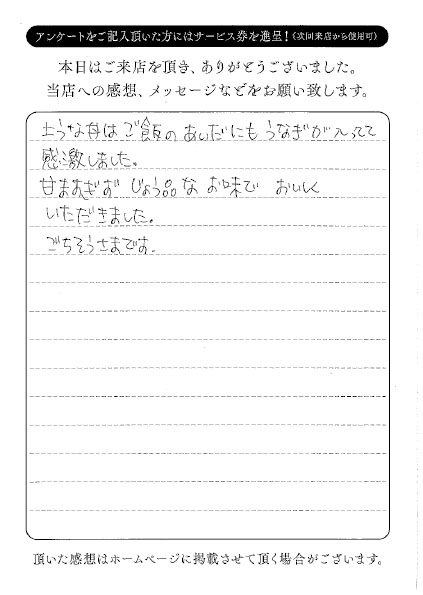 アンケートをご記入頂いた方にはサービス券を進呈!(次回来店から使用可)
本日はご来店を頂き、ありがとうございました。
当店への感想、メッセージなどをお願い致します。
上うな丼はご飯のあいだにもうなぎが入ってて
感激しました。
甘ますぎず じょう品な お味で おいしく
いただきました。
ごちそうさまです.
頂いた感想はホームページに掲載させて頂く場合がございます。